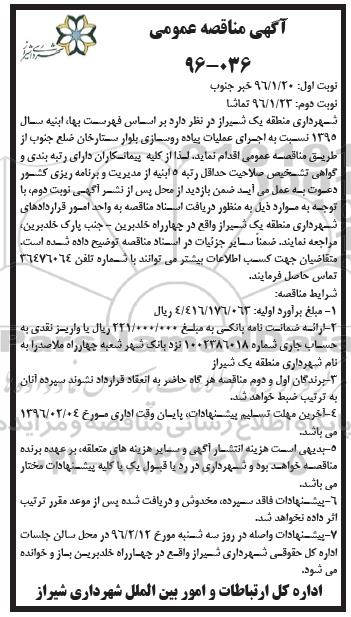 آگهی مناقصه عمومی
۹۶-۰۳۶
شهرداری شیراز
نوبت اول: ۹۶/۱/۲۰ خبر جنوب
نوبت دوم: ۹۶/۱/۲۳ تماشا
شهرداری منطقه یک شیراز در نظر دارد بر اساس فهرست بها، ابنیه سال
۱۳۹۵ نسبت به اجرای عملیات پیاده روسازی بلوار ستارخان ضلع جنوب از
طریق مناقصه عمومی اقدام نماید. لذا از کلیه پیمانکاران دارای رتبه بندی و
گواهی تشخیص صلاحیت حداقل رتبه ۵ ابنیه از مدیریت و برنامه ریزی کشور
دعوت به عمل می آید ضمن بازدید از محل پس از نشر آگهی نوبت دوم، با
توجه به موارد ذیل به منظور دریافت اسناد مناقصه به واحد امور قراردادهای
شهرداری منطقه یک شیراز واقع در چهارراه خلدبرین - جنب پارک خلدبرین،
مراجعه نمایند. ضمناً سایر جزئیات در اسناد مناقصه توضیح داده شده است.
متقاضیان جهت کسب اطلاعات بیشتر می توانند با شماره تلفن ۳۶۴۷۶۰۶۴
تماس حاصل فرمایند.
شرایط مناقصه:
۱- مبلغ برآورد اولیه: ۴/۴۱۶/۱۷۶/۰۶۳ ریال
۲-ارائه ضمانت نامه بانکی به مبلغ ۲۲۱/۰۰۰/۰۰۰ ریال یا واریز نقدی به
حساب جاری شماره ۱۰۰۲۳۸۶۰۱۸ نزد بانک شهر شعبه چهارراه ملاصدرا به
نام شهرداری منطقه یک شیراز
۳-برندگان اول و دوم مناقصه هر گاه حاضر به انعقاد قرارداد نشوند سپرده آنان
به ترتیب ضبط خواهد شد.
۴-آخرین مهلت تسلیم پیشنهادات، پایان وقت اداری مورخ ۱۳۹۶/۰۲/۰۴
می باشد.
۵-بدیهی است هزینه انتشار آگهی و سایر هزینه های متعلقه، بر عهده برنده
مناقصه خواهد بود و شهرداری در رد یا قبول یک یا کلیه پیشنهادات مختار
می باشد.
۶-پیشنهادات فاقد سپرده، مخدوش و دریافت شده پس از موعد مقرر ترتیب
اثر داده نخواهد شد.
۷-پیشنهادات واصله در روز سه شنبه مورخ ۹۶/۲/۱۲ در محل سالن جلسات
اداره کل حقوقی شهرداری شیراز واقع در چهارراه خلدبرین باز و خوانده
می شود.
اداره کل ارتباطات و امور بین الملل شهرداری شیراز